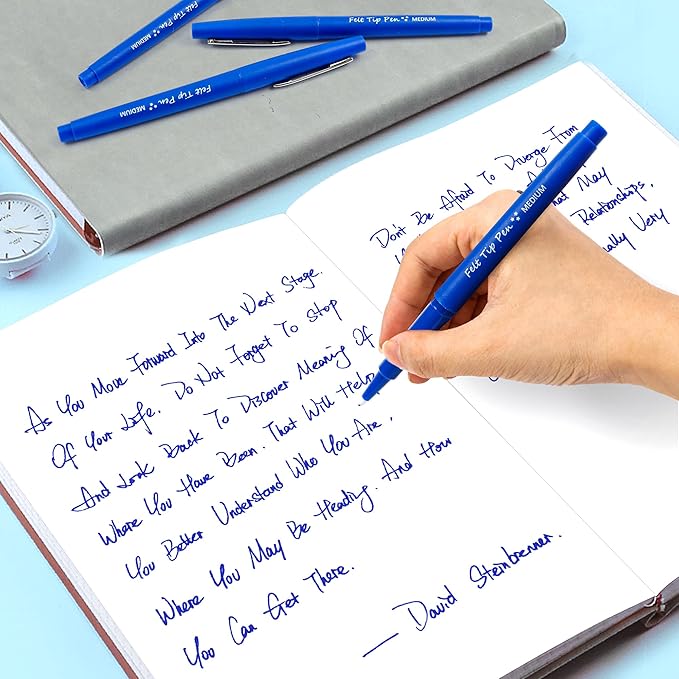 Felt Tip Pen MEDIUM
Felt Tip Pen MEDIUM
Felt Tip Pen MEDIUM
As You Move Forward Into The Next Stage.
Of Your Life. Do Not Forget To Stop
And Look Back To Discover Meaning Of
Where You Have Been. That Will Help
You Better Understand Who You Are,
Where You May Be Heading. And How
You Can Get There.
— David Steinbrenner.
Don't Be Afraid To Diverge From
May
Relationships,
Very
Felt Tip Pen MEDIUM